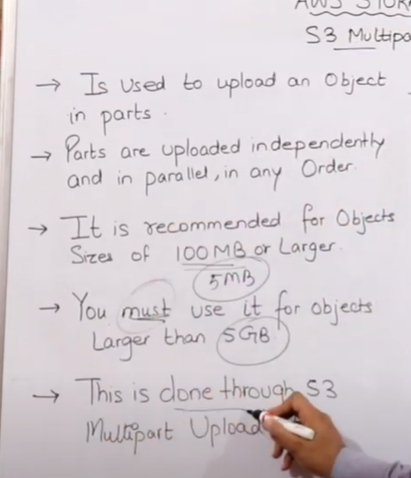 AWS STOR
S3 Multipa
→ Is Used to upload an Object
in parts.
→ Parts are uploaded independently
and in parallel, in any Order.
→ It is recommended for Objects
Sizes of 100MB or Larger.
5MB
→ You must use it for objects
Larger than 5GB
→ This is done through S3
Multipart Upload